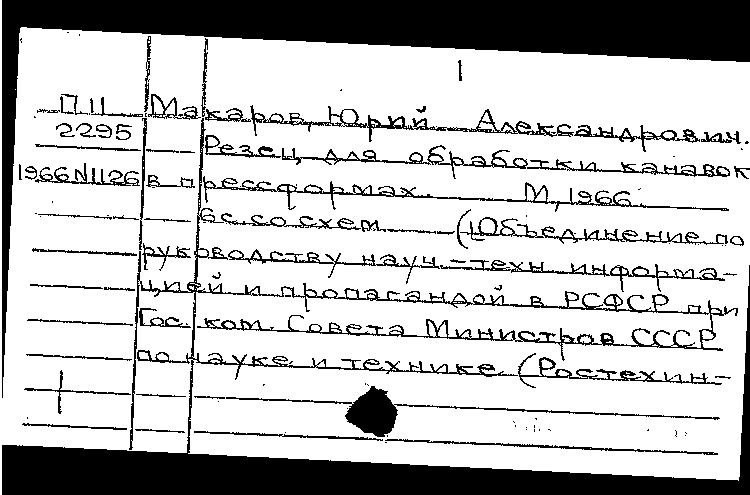 1
П11 Макаров, Юрий Александрович.
2295 Резец для обработки канавок
1966N1126 в прессформах. М, 1966.
6с. со схем (Объединение по
руководству науч.-техн информа-
цией и пропагандой в РСФСР при
Гос. ком. Совета Министров СССР
по науке и технике (Ростехин-